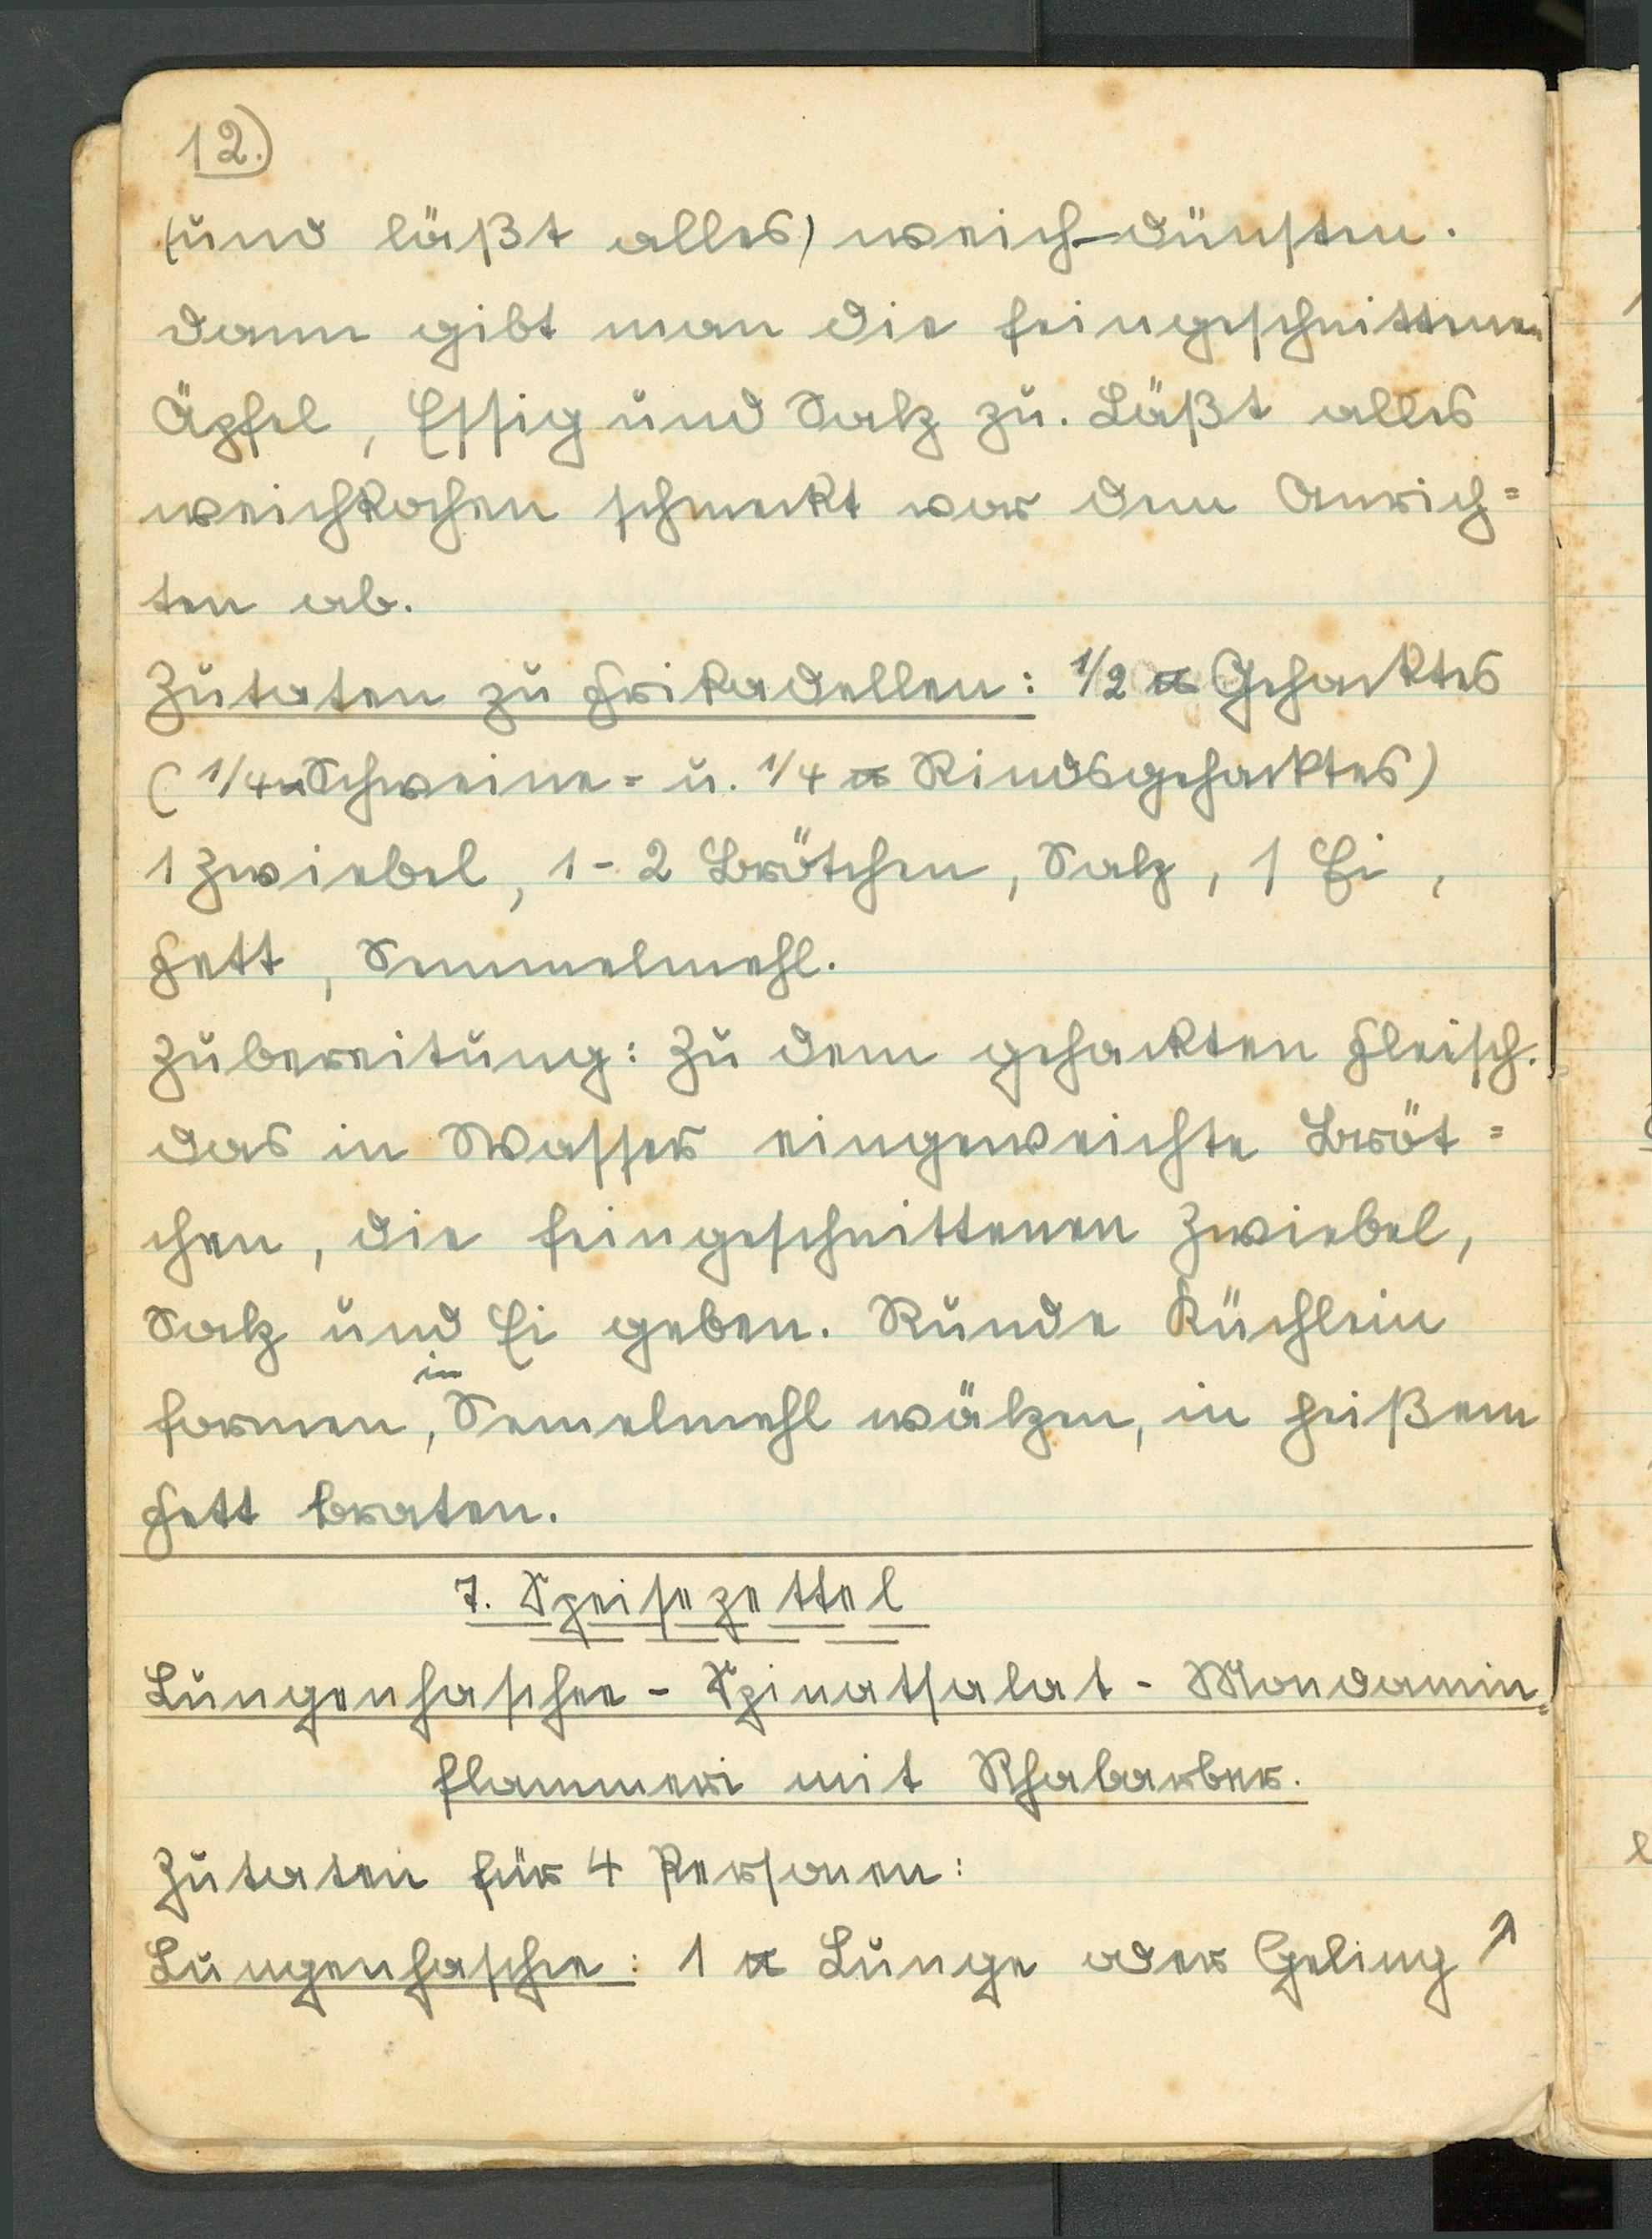 12.)
(und läßt alles) weich-dünsten.
dann gibt man die feingeschnittenen
Äpfel, Essig und Salz zu. Läßt alles
weichkochen schmeckt vor dem Anrich=
ten ab.
Zutaten zu Frikadellen: 1/2 ℔ Gehacktes
(1/4 ℔ Schweine= u. 1/4 ℔ Rindsgehacktes)
1 Zwiebel, 1-2 Brötchen, Salz, 1 Ei,
Fett, Semmelmehl.
Zubereitung: Zu dem gehackten Fleisch.
das in Wasser eingeweichte Bröt=
chen, die feingeschnittenen Zwiebel,
Salz und Ei geben. Runde Küchlein
in
formen, Semelmehl wälzen, in heißem
Fett braten.
7. Speisezettel
Lungenhaschee - Spinatsalat - Mondamin=
flammeri mit Rhabarber.
Zutaten für 4 Personen:
Lungenhaschee: 1 ℔ Lunge oder Geling ↗